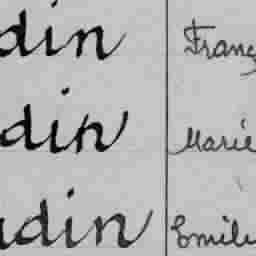 din Franç
din Marie
din Emile